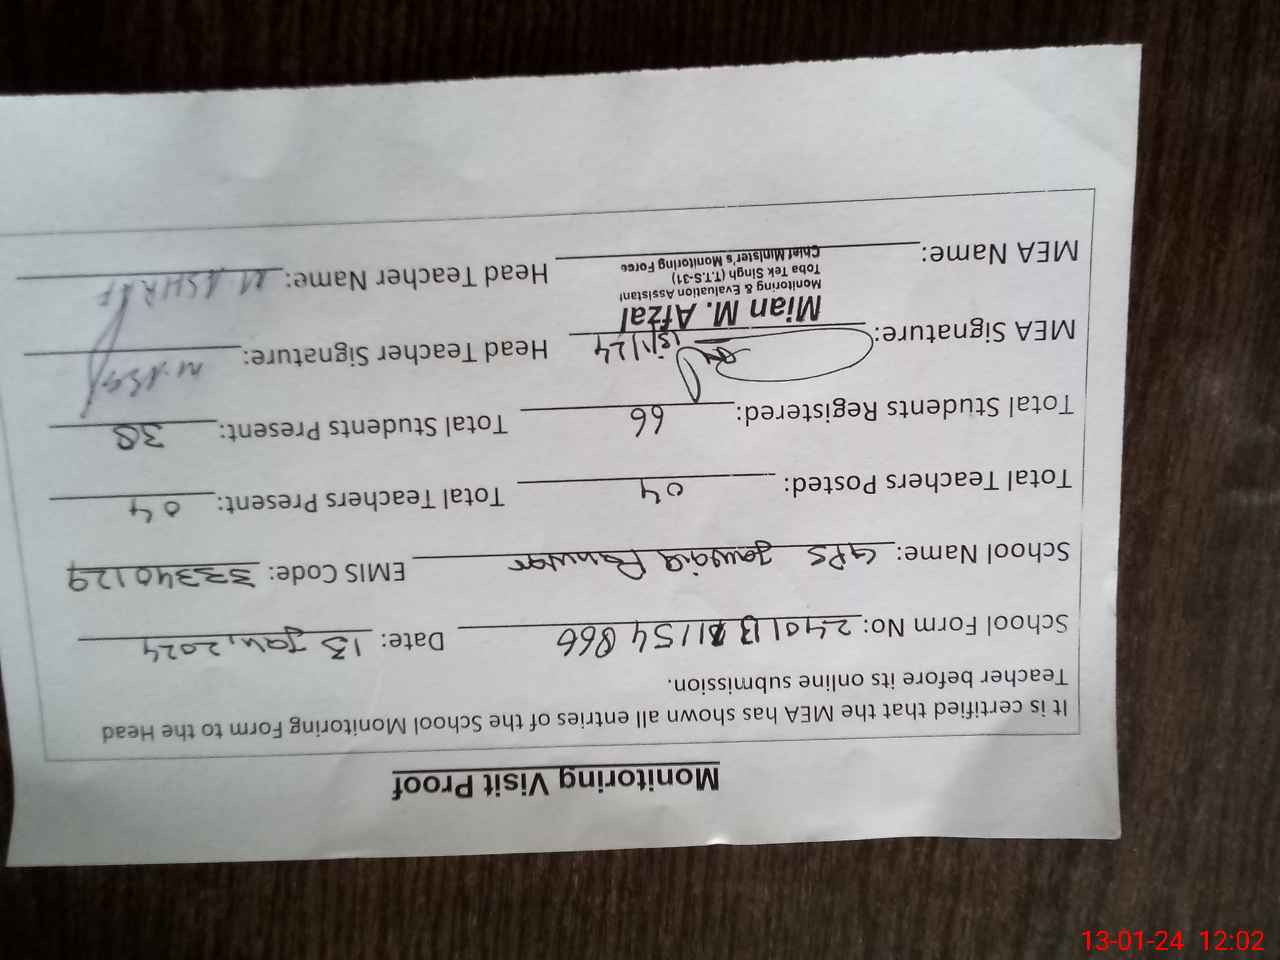 Monitoring Visit Proof
It is certified that the MEA has shown all entries of the School Monitoring Form to the Head
Teacher before its online submission.
School Form No: Date: 13 Jan, 2024
School Name: GPS EMIS Code: 33340129
Total Teachers Posted: 04 Total Teachers Present: 04
Total Students Registered: 66 Total Students Present: 38
MEA Signature: Head Teacher Signature:
Mian M. Afzal
Monitoring & Evaluation Assistant
Toba Tek Singh (T.T.S-31)
Chief Minister's Monitoring Force
MEA Name: Head Teacher Name: M. ASHRAF
13-01-24 12:02